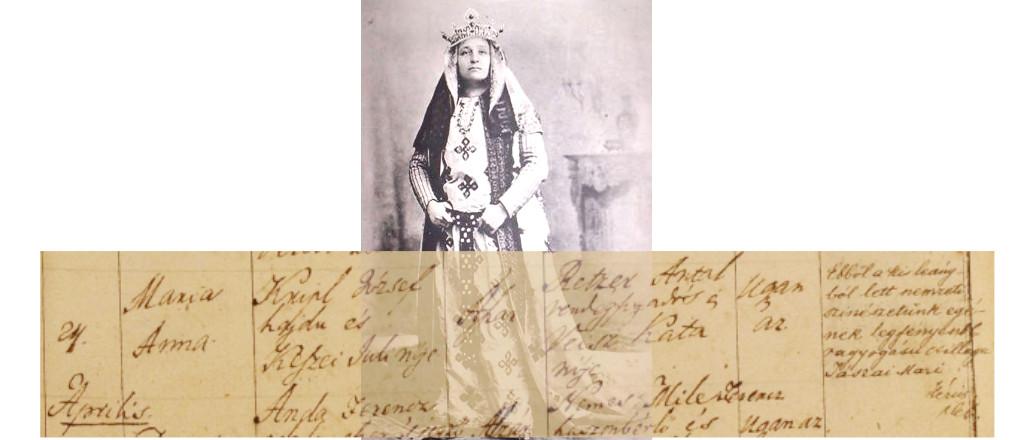 24.
Maria
Anna
Kripl József
hajdu és
Keszei Juli
Ászár
Retzer Antal
vendégfogadós és
Veisz Kata
neje
Ugan
az
Ebből a kis leány-
ból lett nemzeti
színészetünk egé-
nek legfényesebb
ragyogású csillaga
Jászai Mari
Április.
Anda Ferencz
Nemes Mile Ferencz
és
Ugan az